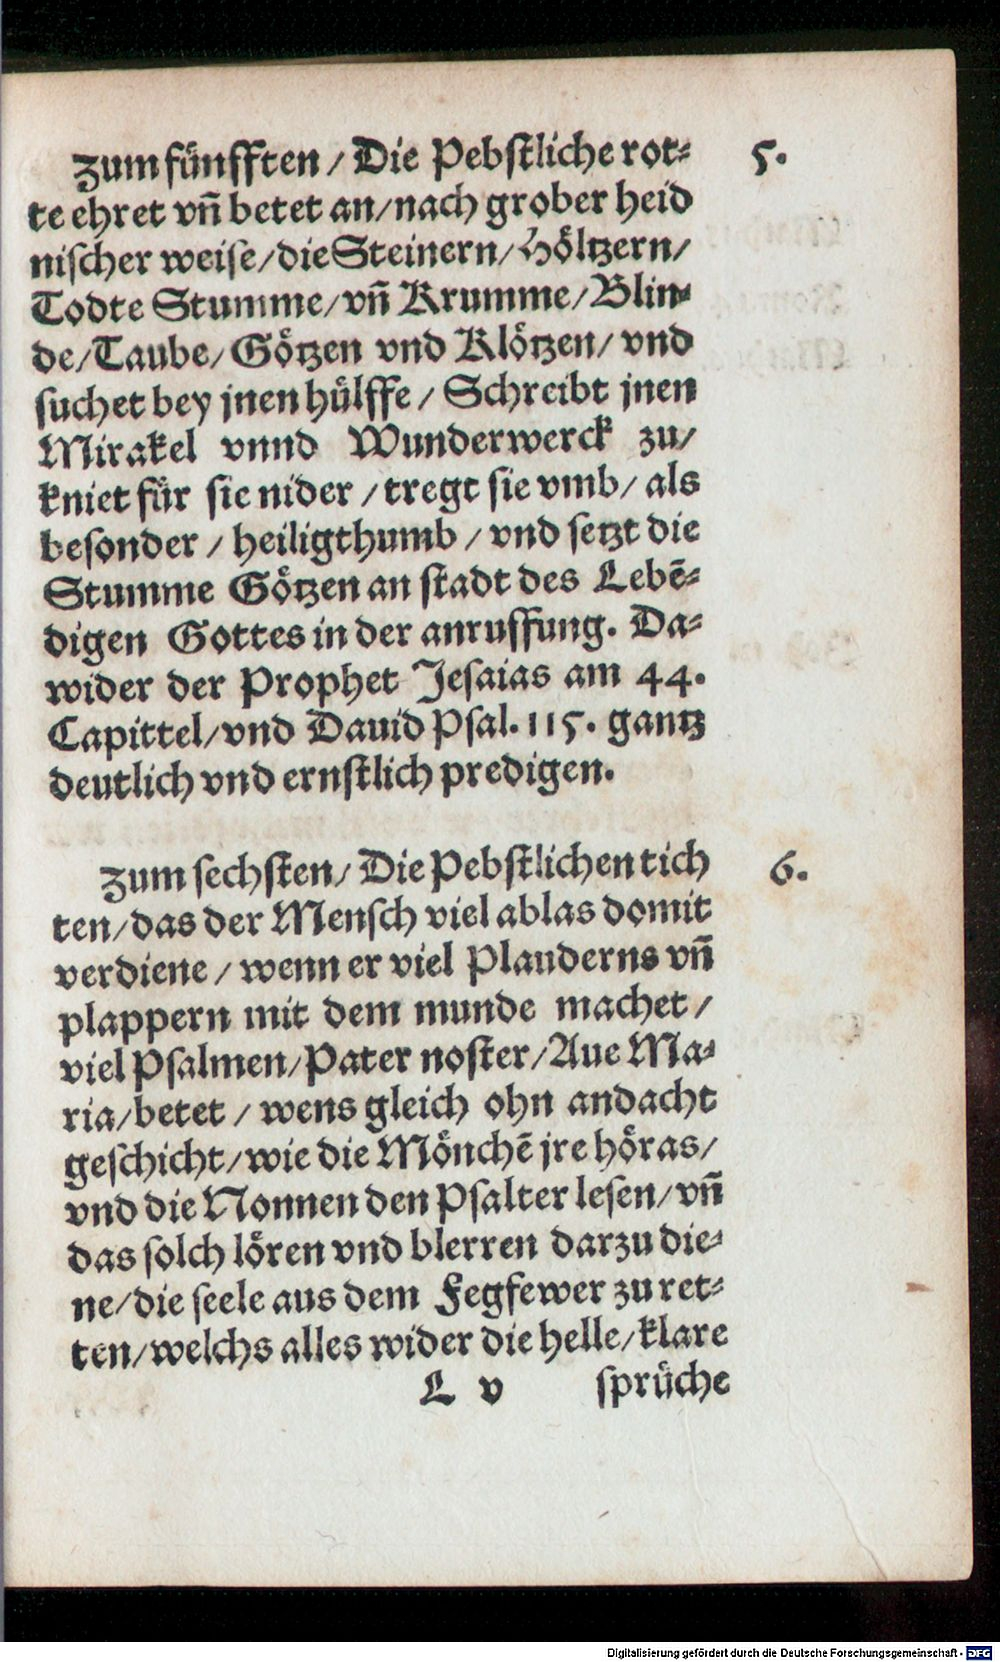 Zum fünfften / Die Pebstliche rot⸗ 5.
te ehret vñ betet an / nach grober heid
nischer weise / die Steinern / Höltzern /
Todte Stumme / vñ Krumme / Blin⸗
de / Taube / Götzen vnd Klötzen / vnd
suchet bey jnen hülffe / Schreibt jnen
Mirakel vnnd Wunderwerck zu /
kniet für sie nider / tregt sie vmb / als
besonder / heiligthumb / vnd setzt die
Stumme Götzen an stadt des Lebē⸗
digen Gottes in der anruffung. Da⸗
wider der Prophet Jesaias am 44.
Capittel / vnd Dauid Psal. 115. gantz
deutlich vnd ernstlich predigen.
Zum sechsten / Die Pebstlichen tich 6.
ten / das der Mensch viel ablas domit
verdiene / wenn er viel Plauderns vñ
plappern mit dem munde machet /
viel Psalmen / Pater noster / Aue Ma⸗
ria / betet / wens gleich ohn andacht
geschicht / wie die Mönchē jre höras /
vnd die Nonnen den Psalter lesen / vñ
das solch lören vnd blerren darzu die⸗
ne / die seele aus dem Fegfewer zu ret⸗
ten / welchs alles wider die helle / klare
L v sprüche
Digitalisierung gefördert durch die Deutsche Forschungsgemeinschaft - DFG